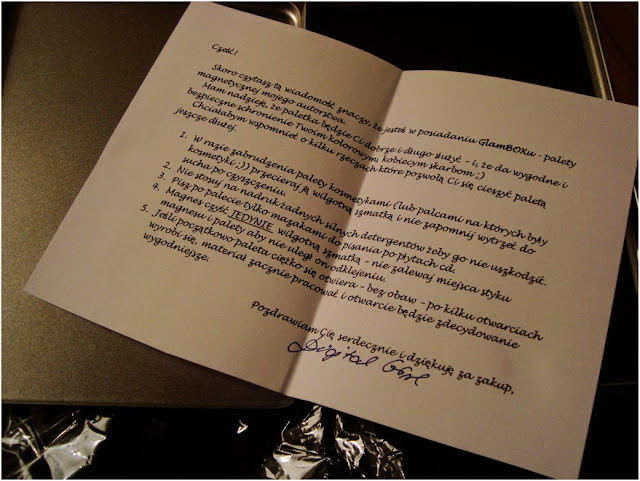 Cześć!
Skoro czytasz tą wiadomość, znaczy, że jesteś w posiadaniu GlamBOXu - palety
magnetycznej mojego autorstwa.
Mam nadzieję, że paletka będzie Ci dobrze i długo służyć - i, że da wygodne i
bezpieczne schronienie Twoim kolorowym, kobiecym skarbom ;)
Chciałabym wspomnieć o kilku rzeczach które pozwolą Ci się cieszyć paletą
jeszcze dłużej.
1. W razie zabrudzenia palety kosmetykami (lub palcami na których były
kosmetyki ;)) przecieraj ją wilgotną szmatką i nie zapomnij wytrzeć do
sucha po czyszczeniu.
2. Nie stosuj na nadruk żadnych silnych detergentów żeby go nie uszkodzić.
3. Pisz po palecie tylko mazakami do pisania po płytach cd.
4. Magnes czyść JEDYNIE wilgotną szmatką - nie zalewaj miejsca styku
magnesu i palety aby nie uległ on odklejeniu.
5. Jeśli początkowo paleta ciężko się otwiera - bez obaw - po kilku otwarciach
wyrobi się, materiał zacznie pracować i otwarcie będzie zdecydowanie
wygodniejsze.
Pozdrawiam Cię serdecznie i dziękuję za zakup,
Digital Girl